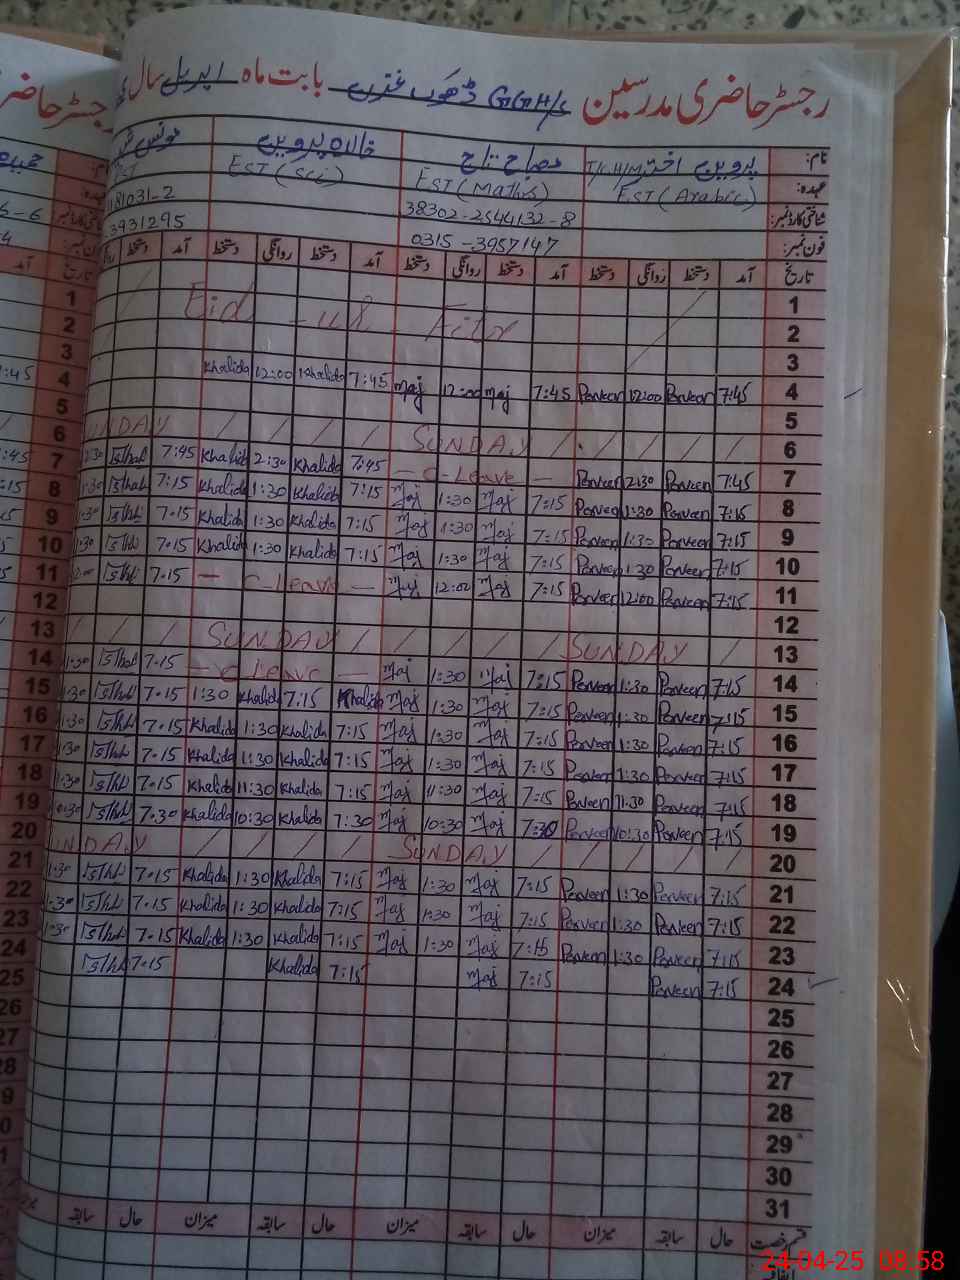 رجسٹر حاضری مدرسین GGHS ڈھوک بابت ماہ اپریل سال
نام: پروین اختر خالدہ پروین
عہدہ: EST (Arabic) EST (Maths) EST (Sci)
شناختی کارڈ نمبر: 38302-2544132-8 81031-2
فون نمبر: 0315-3957147 3931295
تاریخ آمد دستخط روانگی دستخط آمد دستخط روانگی دستخط آمد دستخط روانگی دستخط آمد دستخط
1
2 Eid - ul Fitr
3
4 7:45 Parveen 12:00 Parveen 7:45 maj 12:00 maj 7:45 Khalida 12:00 Khalida
5
6 SUNDAY SUNDAY
7 7:45 Parveen 2:30 Parveen - C-Leave - 7:45 Khalida 2:30 Khalida 7:45
8 7:15 Parveen 1:30 Parveen 7:15 maj 1:30 maj 7:15 Khalida 1:30 Khalida 7:15
9 7:15 Parveen 1:30 Parveen 7:15 maj 1:30 maj 7:15 Khalida 1:30 Khalida 7:15
10 7:15 Parveen 1:30 Parveen 7:15 maj 1:30 maj 7:15 Khalida 1:30 Khalida 7:15
11 7:15 Parveen 12:00 Parveen 7:15 maj 12:00 maj - C Leave - 7:15
12
13 SUNDAY SUNDAY
14 7:15 Parveen 1:30 Parveen 7:15 maj 1:30 maj - C Leave - 7:15
15 7:15 Parveen 1:30 Parveen 7:15 maj 1:30 maj Khalida 7:15 Khalida 1:30 7:15
16 7:15 Parveen 1:30 Parveen 7:15 maj 1:30 maj 7:15 Khalida 1:30 Khalida 7:15
17 7:15 Parveen 1:30 Parveen 7:15 maj 1:30 maj 7:15 Khalida 1:30 Khalida 7:15
18 7:15 Parveen 11:30 Parveen 7:15 maj 11:30 maj 7:15 Khalida 11:30 Khalida 7:15
19 7:15 Parveen 10:30 Parveen 7:30 maj 10:30 maj 7:30 Khalida 10:30 Khalida 7:30
20 SUNDAY UNDAY
21 7:15 Parveen 1:30 Parveen 7:15 maj 1:30 maj 7:15 Khalida 1:30 Khalida 7:15
22 7:15 Parveen 1:30 Parveen 7:15 maj 1:30 maj 7:15 Khalida 1:30 Khalida 7:15
23 7:15 Parveen 1:30 Parveen 7:15 maj 1:30 maj 7:15 Khalida 1:30 Khalida 7:15
24 7:15 Parveen 7:15 maj 7:15 Khalida 7:15
25
26
27
28
29
30
31
قسم رخصت حال سابقہ میزان حال سابقہ میزان حال سابقہ میزان حال سابقہ
24-04-25 08:58